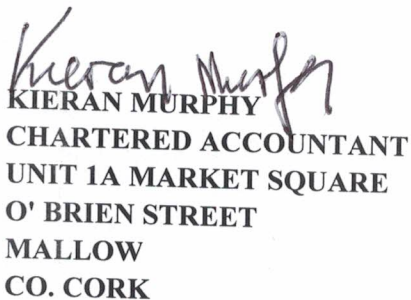 Kieran Murphy
KIERAN MURPHY
CHARTERED ACCOUNTANT
UNIT 1A MARKET SQUARE
O' BRIEN STREET
MALLOW
CO. CORK